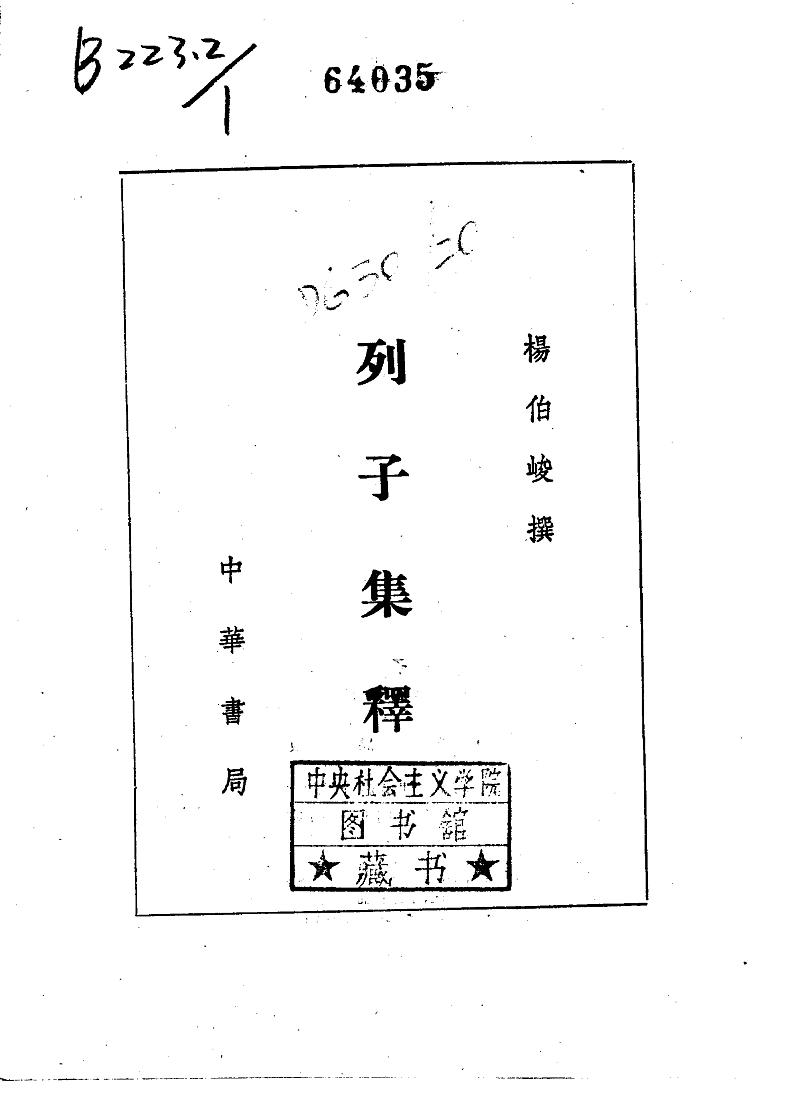 B223.2/1
64035
楊伯峻撰
列子集釋
中華書局
中央社会主义学院
图书馆
★藏书★